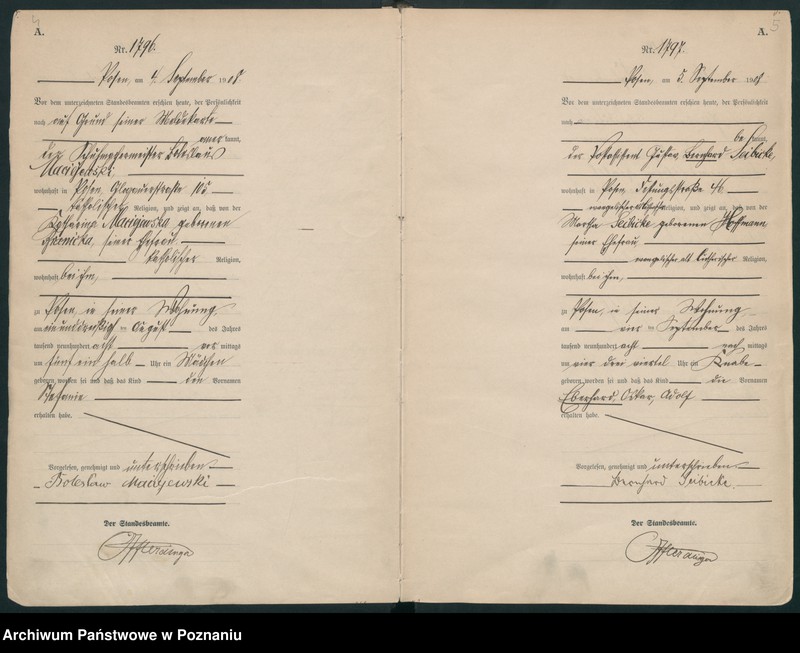 A.
Nr. 1796.
Posen, am 4. September 1908
Vor dem unterzeichneten Standesbeamten erschien heute, der Persönlichkeit
nach auf Grund seiner Meldekarte
kannt,
der Schuhmachermeister Boleslaus
Maciejewski,
wohnhaft in Posen, Glogauerstraße 105
katholischer Religion, und zeigte an, daß von der
Katharina Maciejewska geborenen
seiner Ehefrau
katholischer Religion,
wohnhaft bei ihm,
zu Posen, in seiner Wohnung
am einunddreißigten August des Jahres
tausend neunhundert acht vor mittags
um fünf ein halb Uhr ein Mädchen
geboren worden sei und daß das Kind den Vornamen
Stefanie
erhalten habe.
Vorgelesen, genehmigt und unterschrieben
Bolesław Maciejewski
Der Standesbeamte.
A.
5
Nr. 1797.
Posen, am 5. September 1908
Vor dem unterzeichneten Standesbeamten erschien heute, der Persönlichkeit
nach
be kannt,
der Postassistent Gustav Bernhard Seibicke,
wohnhaft in Posen, 46
Religion, und zeigte an, daß von der
Martha Seibicke geborenen Hoffmann
seiner Ehefrau
evangelischer alt lutherischer Religion,
wohnhaft bei ihm,
zu Posen, in seiner Wohnung
am vier ten September des Jahres
tausend neunhundert acht nach mittags
um vier drei viertel Uhr ein Knabe
geboren worden sei und daß das Kind die Vornamen
Eberhard, Oskar, Adolf
erhalten habe.
Vorgelesen, genehmigt und unterschrieben
Bernhard Seibicke.
Der Standesbeamte.
Archiwum Państwowe w Poznaniu